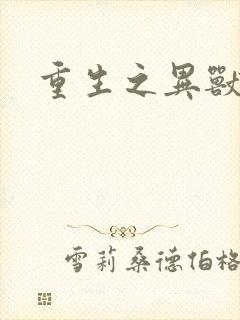 重生之異獸
雪莉桑德伯格